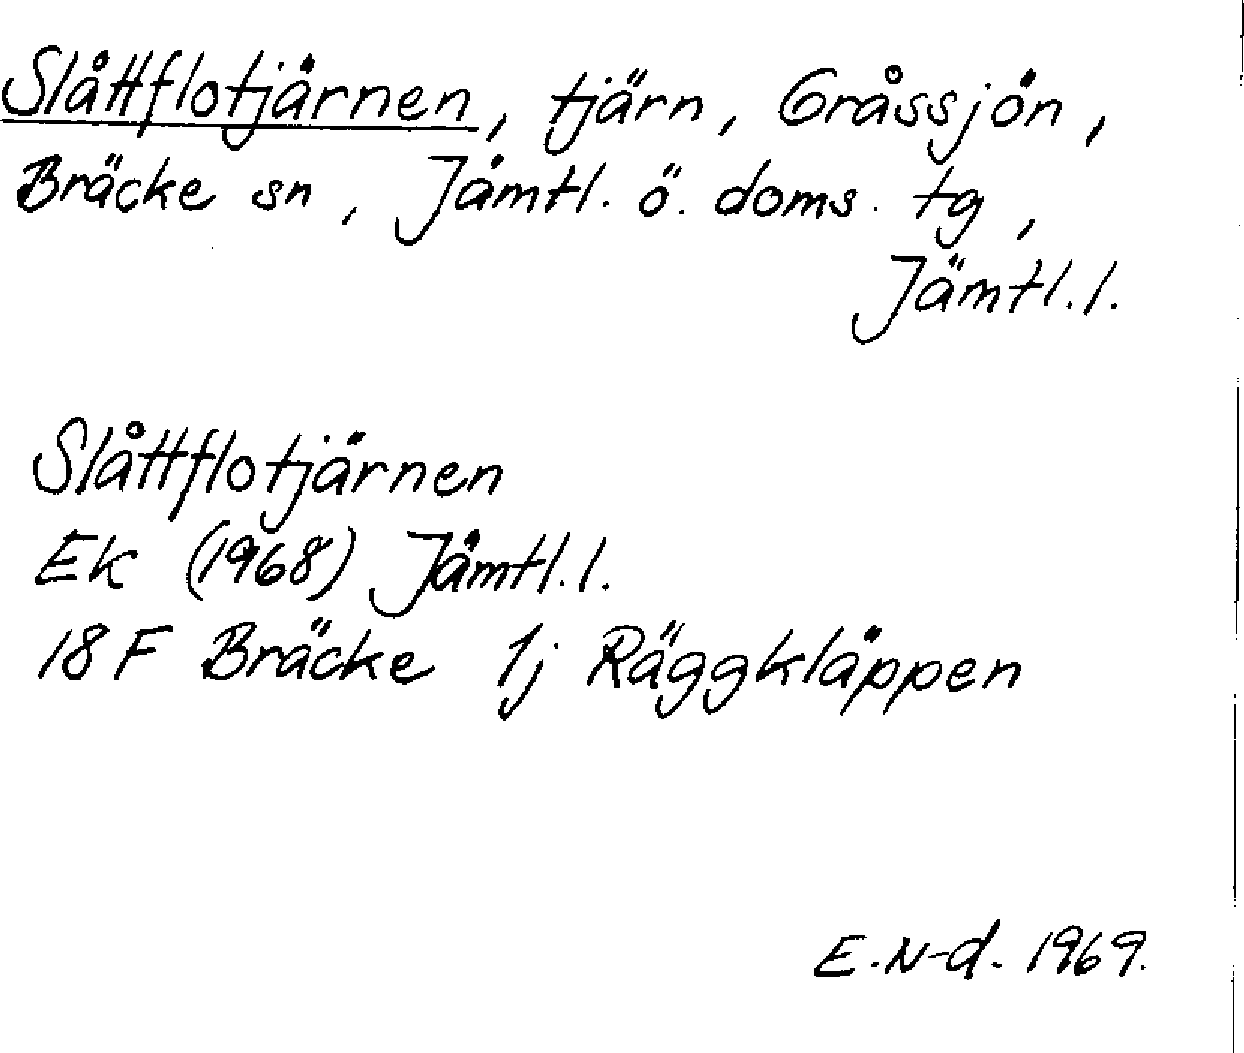 Slåttflotjärnen, tjärn, Gråssjön,
Bräcke sn, Jämtl. ö. doms. tg,
Jämtl. l.
Slåttflotjärnen
Ek (1968) Jämtl. l.
18 F Bräcke 1j Räggkläppen
E. N-d. 1969.